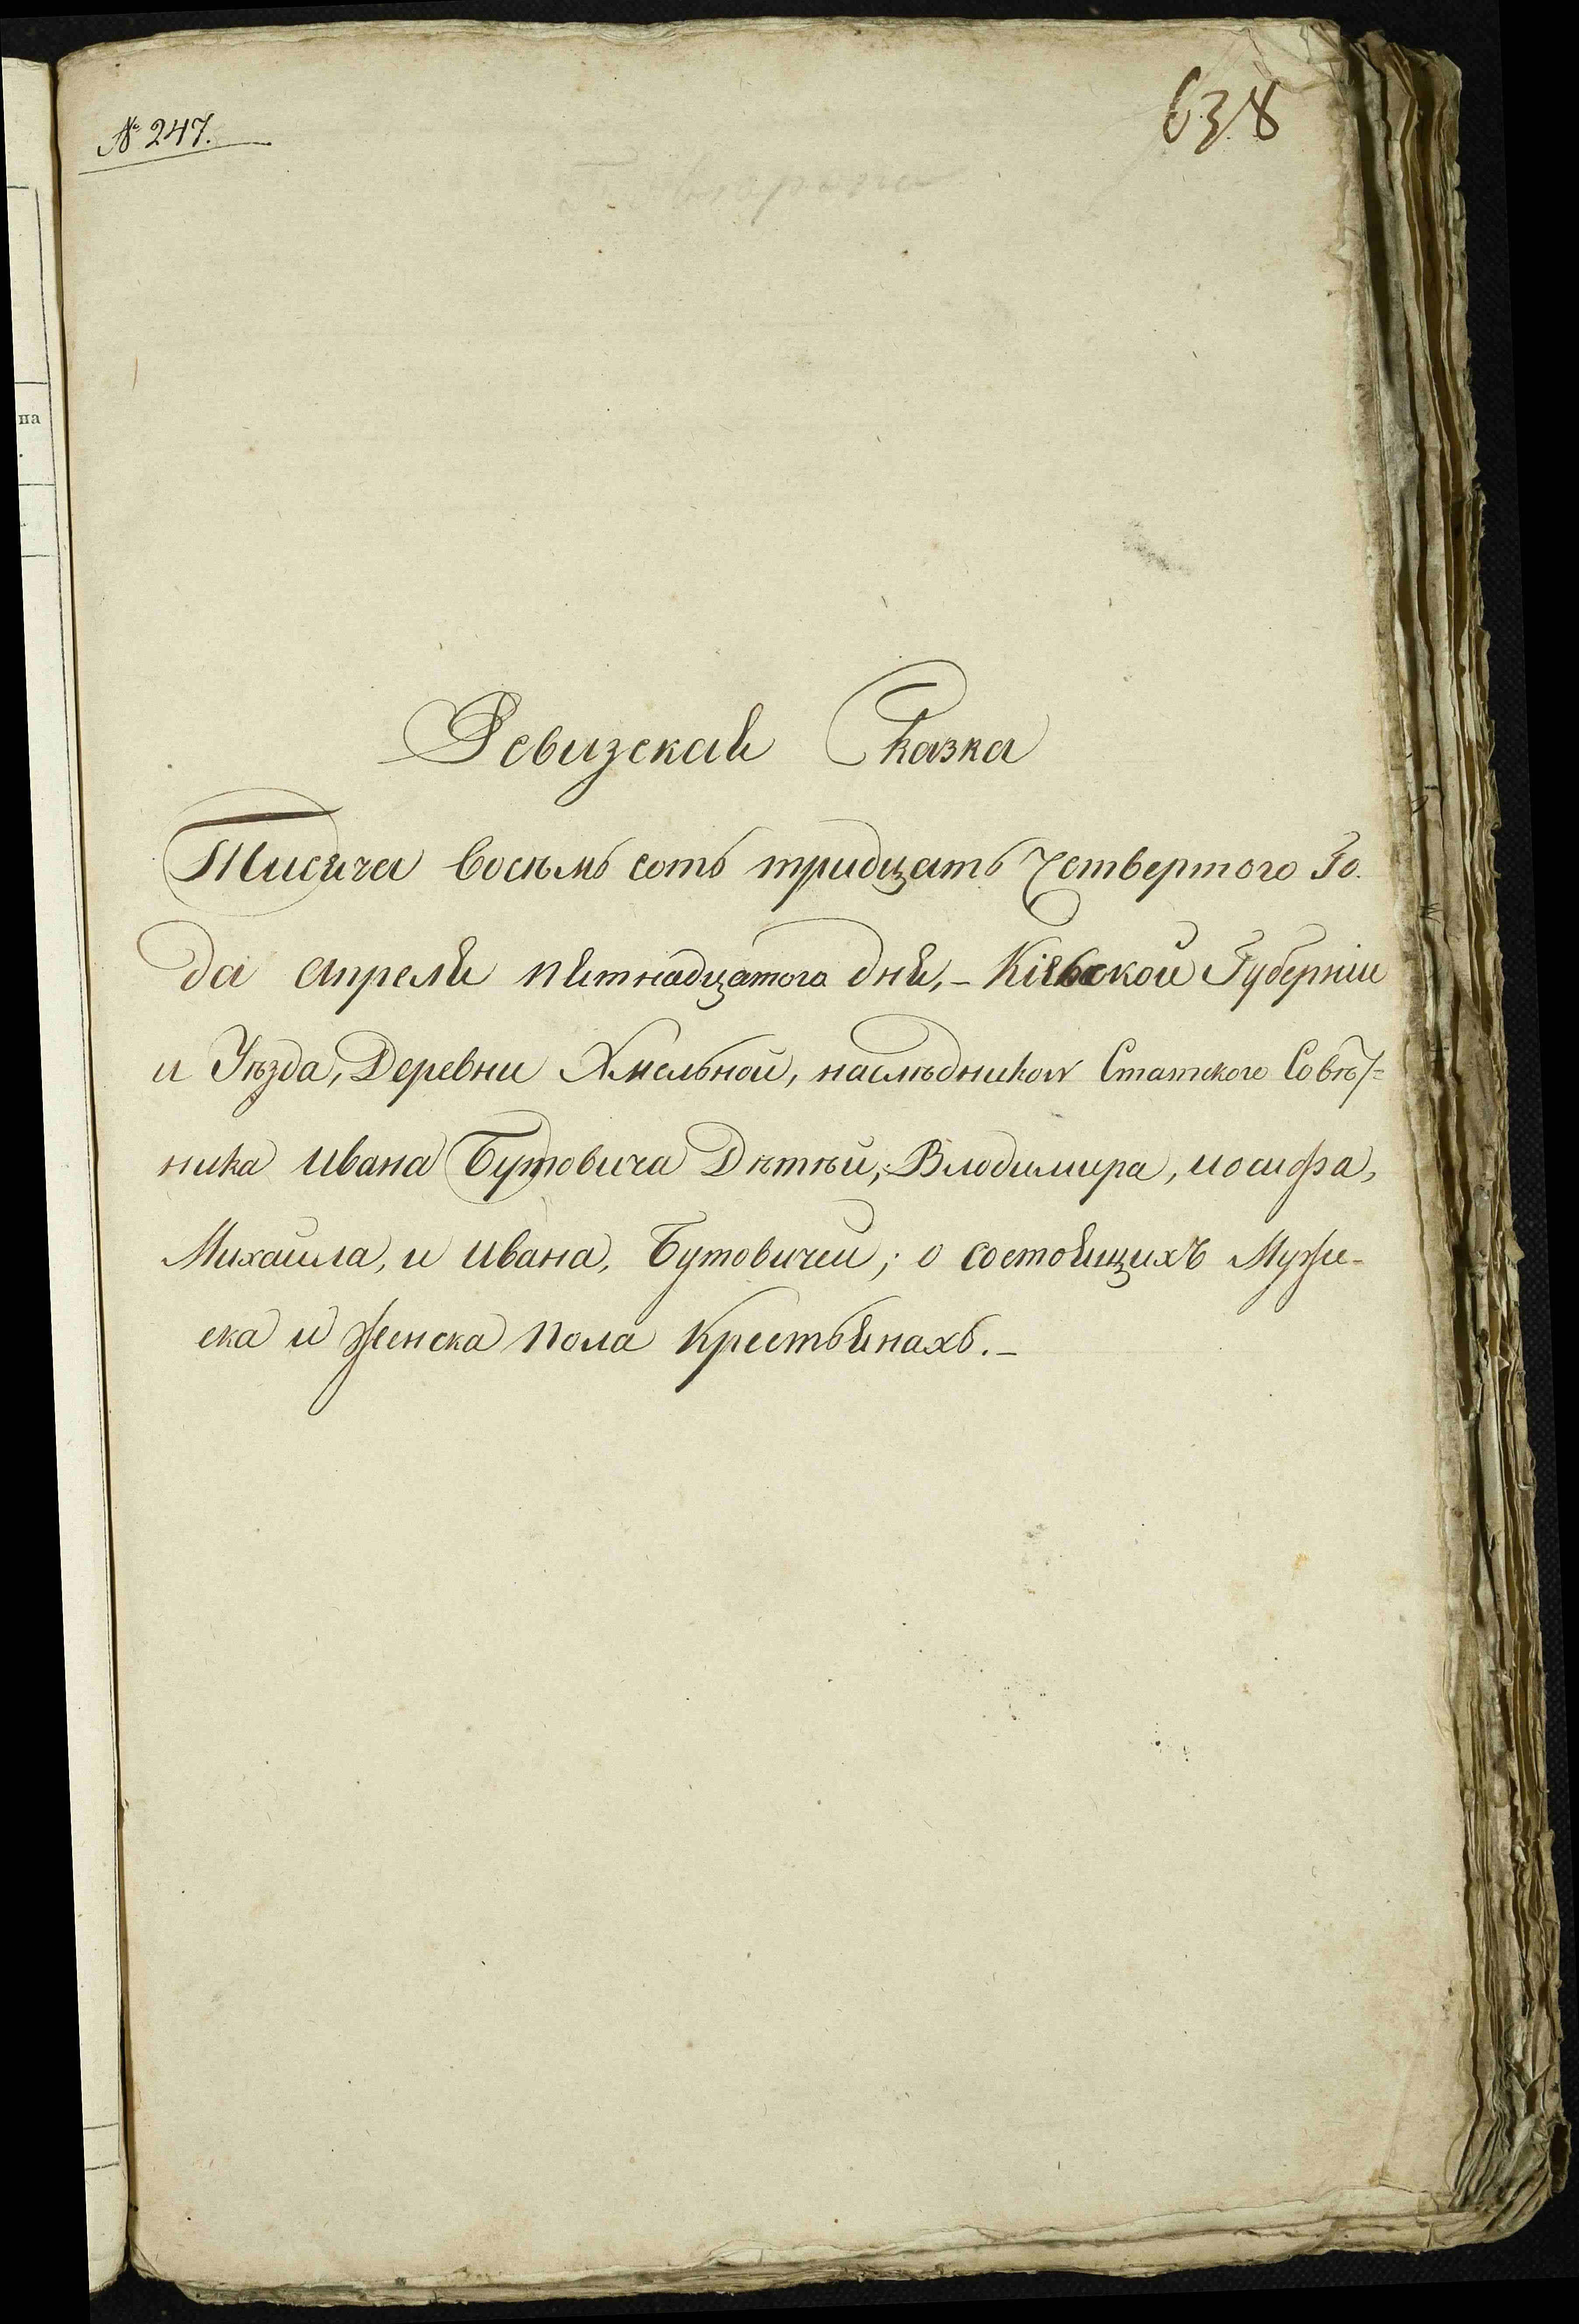 № 247.
638
Ревизская Сказка
Тисяча восѣмь сотъ тридцать четвертого Го-
да апреля пятнадцатого дня, - Кіевской Губерніи
и Уѣзда, Деревни Хмельной, наслѣдников Статского Совѣт=
ника Ивана Бутовича Дѣтѣй, Влодимира, иосифа,
Михаила, и Ивана, Бутовичей; о состоящихъ Муже-
ска и женска пола Крестьянахъ. -
на